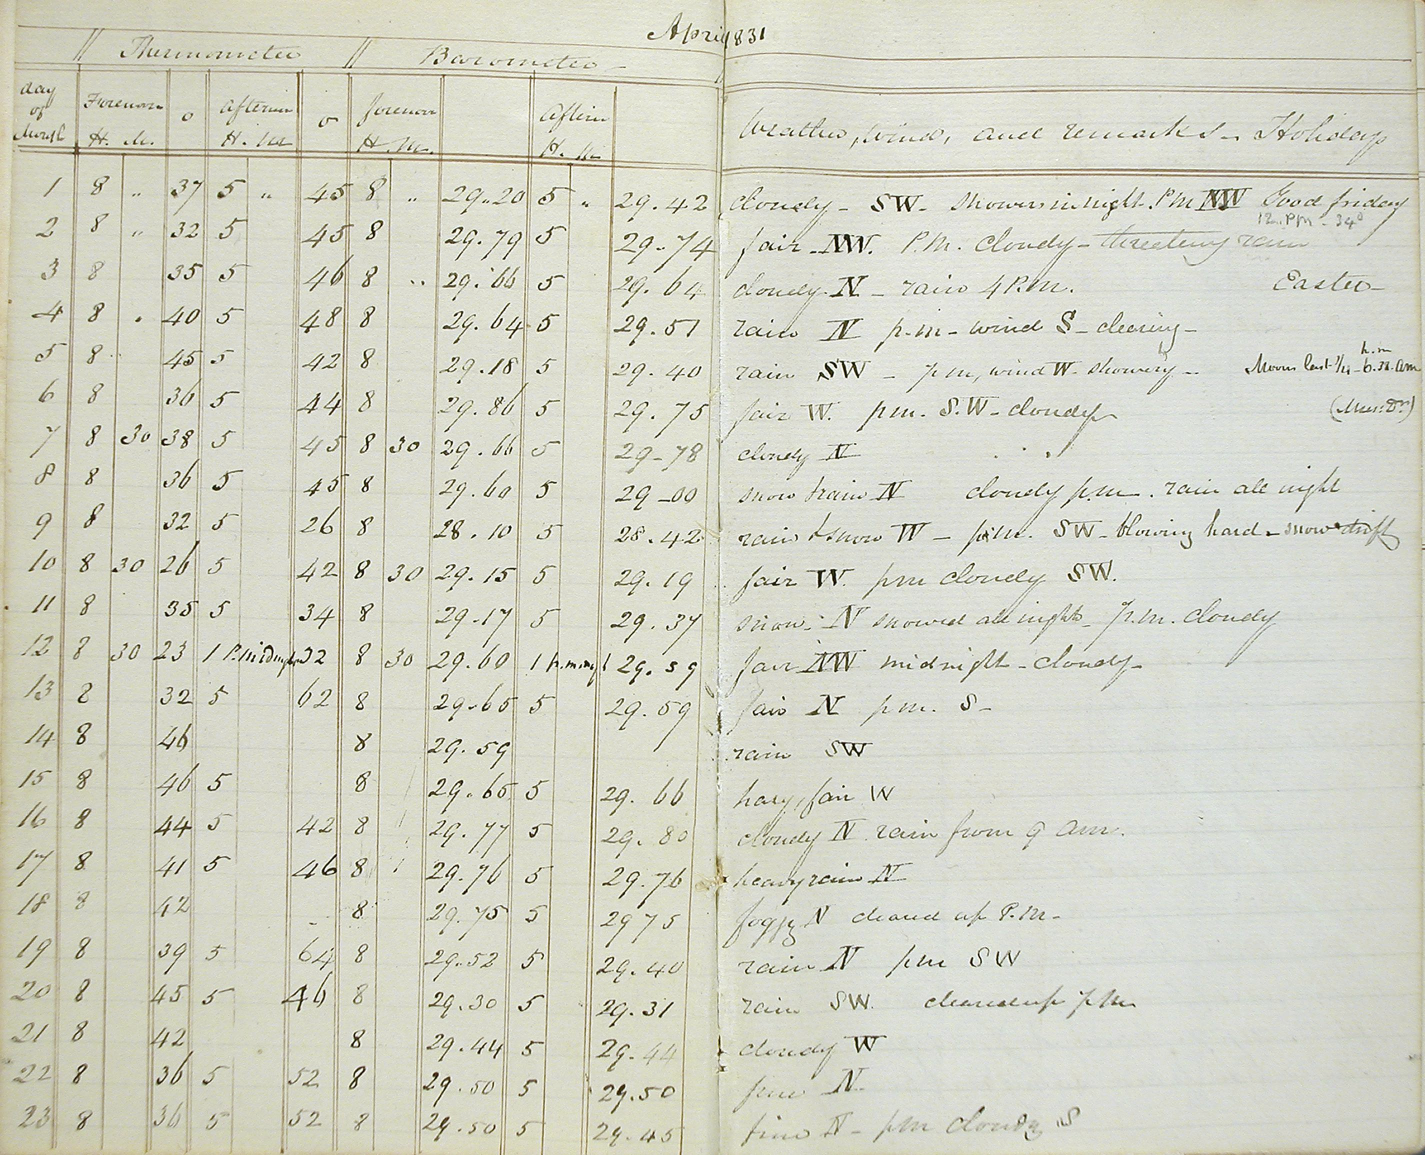 April 1831
Thermometer Barometer
day of Month Forenoon H. M. o Aftern H. M o forenoon H. M. Aftern H. M Weather, Wind, and remarks - Holidays
1 8 " 37 5 " 45 8 " 29.20 5 " 29.42 cloudy - SW - showers in night. P.M NW Good friday
12. P.M - 34°
2 8 " 32 5 45 8 29.79 5 29.74 fair - NW. P.M. cloudy - threatening rain
3 8 35 5 46 8 " 29.66 5 29.64 cloudy N - rain 4 P.M. Easter -
4 8 " 40 5 48 8 29.64 5 29.51 rain N p.m - wind S - clearing -
5 8 " 45 5 42 8 29.18 5 29.40 rain SW - p m, wind W - showery - Moons last 1/4 - 6. am
h. m
6 8 36 5 44 8 29.86 5 29.75 fair W. pm. S.W - cloudy
7 8 30 38 5 45 8 30 29.66 5 29-78 cloudy N
8 8 36 5 45 8 29.60 5 29-00 snow & rain N cloudy p.m. rain all night
9 8 32 5 26 8 28.10 5 28.42 rain & snow W - p.m. SW - blowing hard - snow drift
10 8 30 26 5 42 8 30 29.15 5 29.19 fair W. pm cloudy SW.
11 8 35 5 34 8 29.17 5 29.37 snow - N snowed all night - p.m. cloudy
12 8 30 23 1 32 8 30 29.60 1 29.59 fair NW midnight - cloudy
13 8 32 5 62 8 29.65 5 29.59 fair N pm. S -
14 8 46 8 29.59 rain SW
15 8 46 5 8 29.65 5 29.66 hazy, fair W
16 8 44 5 42 8 29.77 5 29.80 cloudy N rain from 9 am.
17 8 41 5 46 8 29.76 5 29.76 heavy rain N
18 8 42 - 8 29.75 5 29 75 foggy N cleared up P.M -
19 8 39 5 64 8 29.52 5 29.40 rain N pm SW
20 8 45 5 46 8 29.30 5 29.31 rain SW. cleared up p m
21 8 42 8 29.44 5 29.44 cloudy W
22 8 36 5 52 8 29.50 5 29.50 N
23 8 36 5 52 8 29.50 5 29.45 fine N - pm cloudy S